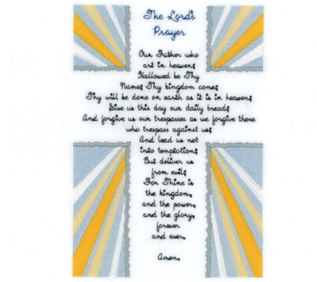 The Lord's
Prayer
Our Father who
art in heaven;
Hallowed be Thy
Name; Thy kingdom come;
Thy will be done on earth as it is in heaven;
Give us this day our daily bread;
And forgive us our trespasses as we forgive those
who trespass against us;
And lead us not
into temptation;
But deliver us
from evil;
For Thine is
the kingdom,
and the power,
and the glory,
forever
and ever,
Amen.